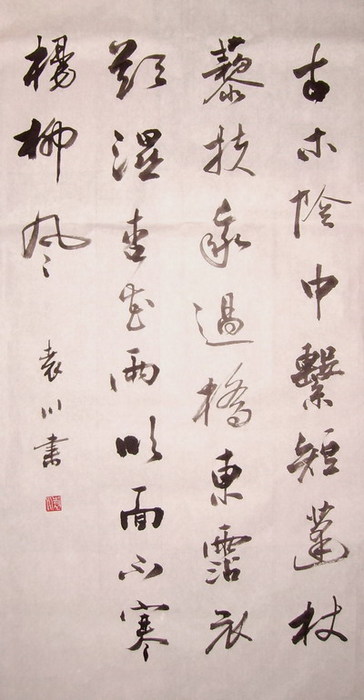 古木陰中繫短蓬杖
藜扶我過橋東霑衣
欲濕杏花雨吹面不寒
楊柳風
袁川書